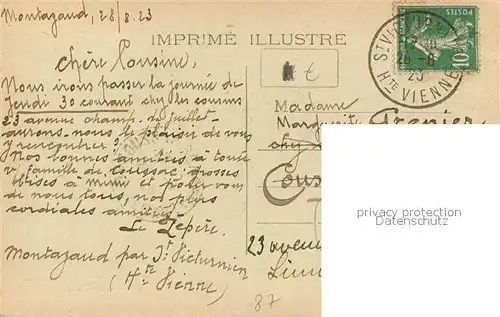 Montazaud, 28/8.23
IMPRIMÉ ILLUSTRE
Chère Cousine,
Nous irons passer la journée de
Jeudi 30 courant chez les cousins
23 avenue champ de juillet
aurons-nous le plaisir de vous
y rencontrer?
Nos bonnes amitiés à toute
la famille de Coussac, grosses
bises à Mimi et pour vous
de nous tous, nos plus
cordiales amitiés
Le
Montazaud par St Victurnien
(Hte Vienne)
Madame
Marguerite Grenier
chez
Cous
23 avenue
Limo
87
POSTES
10c
ST VI
28-8
23
HTE VIENNE
privacy protection
Datenschutz